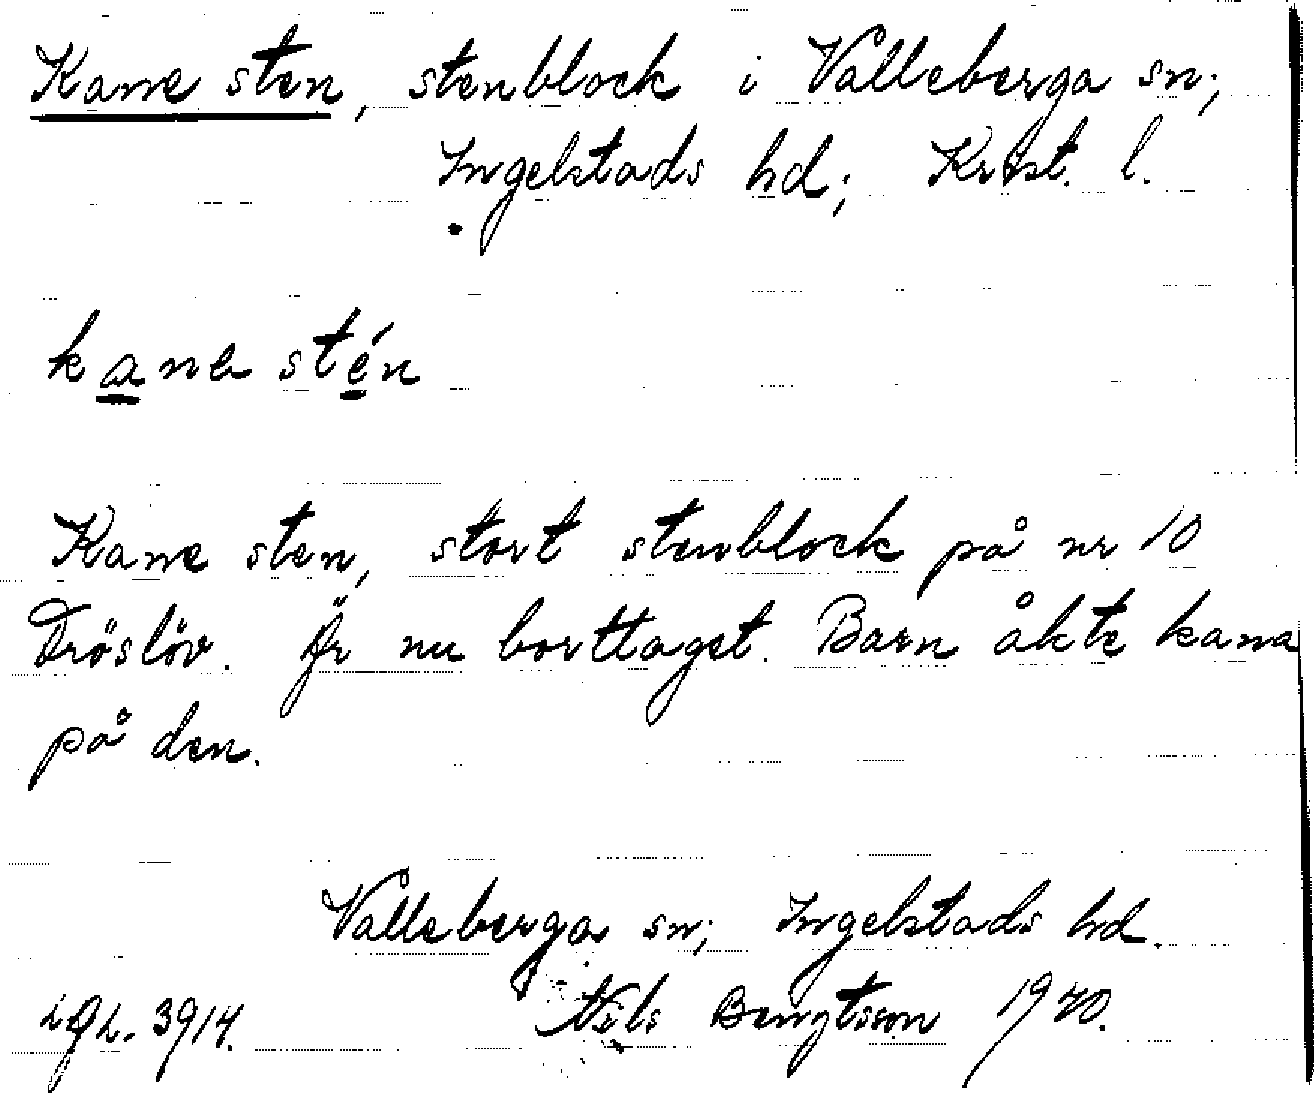 Kane sten, stenblock i Valleberga sn;
Ingelstads hd; Krist. l.
kane stén
Kane sten, stort stenblock på nr 10
Tröslöv. Är nu borttaget. Barn åkte kana
på den.
Valleberga sn; Ingelstads hd.
Nils Bengtsson 1940.
3914.